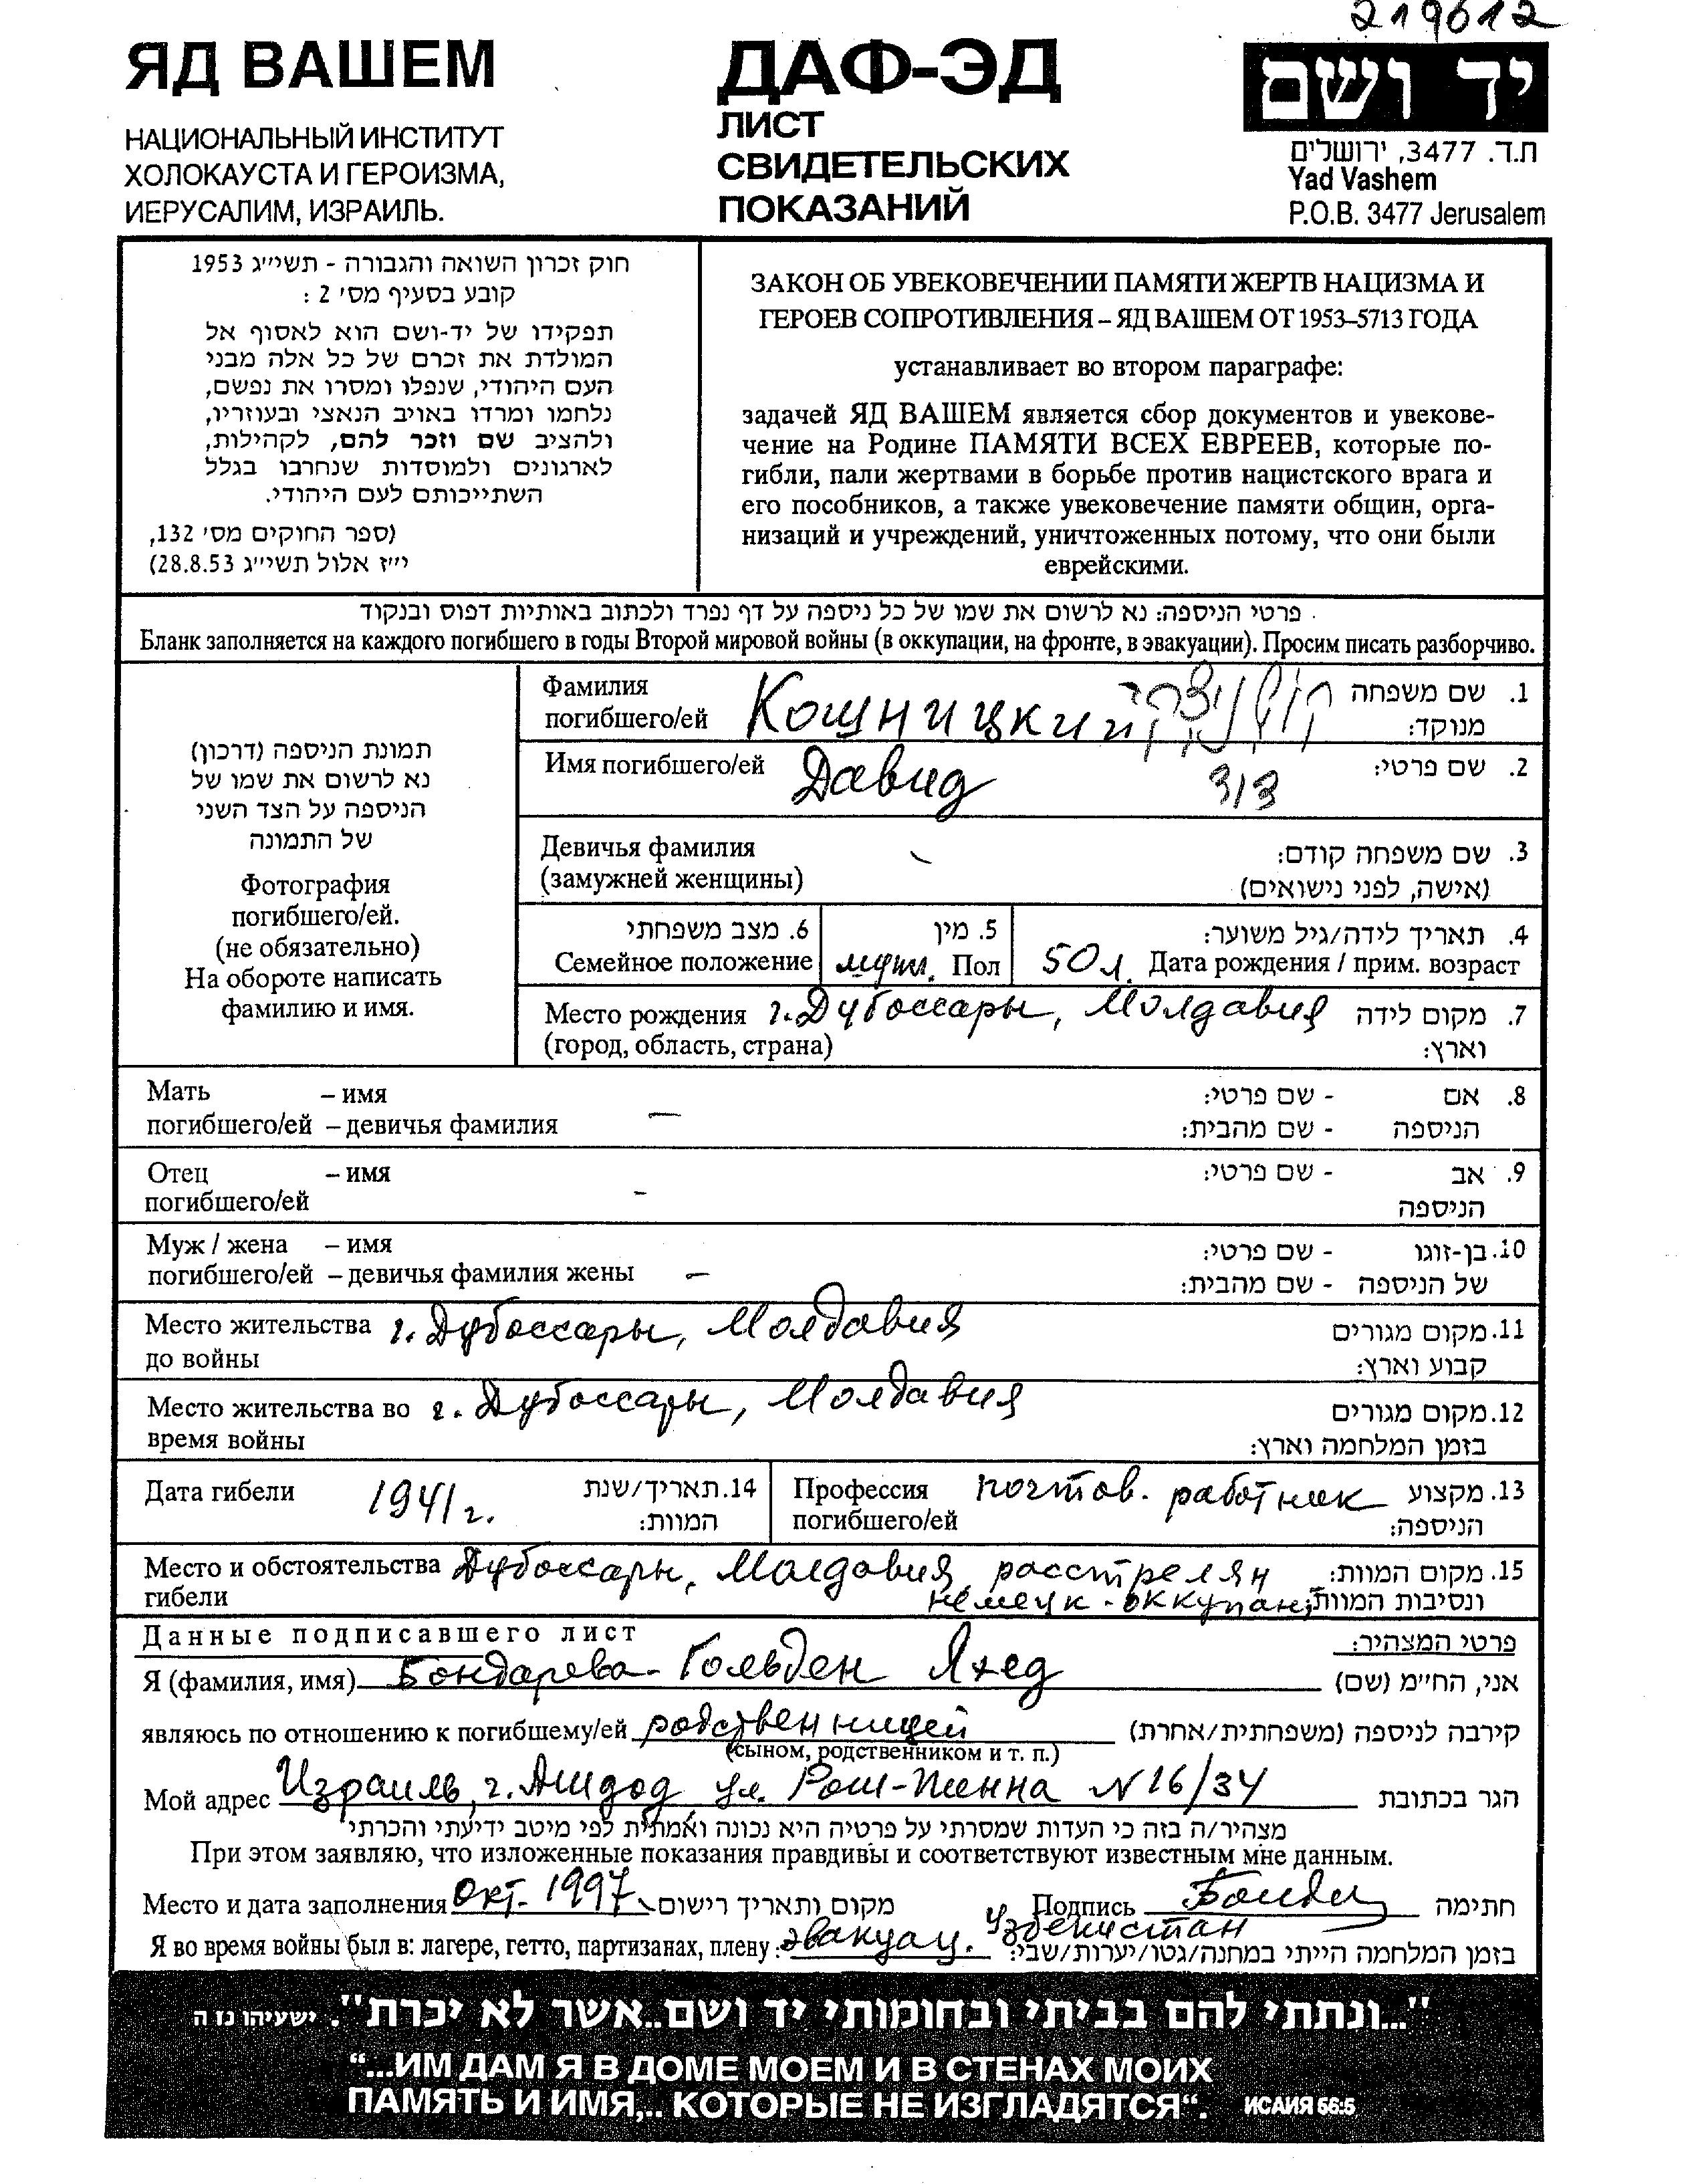 219612
ЯД ВАШЕМ
НАЦИОНАЛЬНЫЙ ИНСТИТУТ
ХОЛОКАУСТА И ГЕРОИЗМА,
ИЕРУСАЛИМ, ИЗРАИЛЬ.
ДАФ-ЭД
ЛИСТ
СВИДЕТЕЛЬСКИХ
ПОКАЗАНИЙ
יד ושם
ת.ד. 3477, ירושלים
Yad Vashem
P.O.B. 3477 Jerusalem
חוק זכרון השואה והגבורה - תשי״ג 1953
קובע בסעיף מס׳ 2 :
תפקידו של יד-ושם הוא לאסוף אל
המולדת את זכרם של כל אלה מבני
העם היהודי, שנפלו ומסרו את נפשם,
נלחמו ומרדו באויב הנאצי ובעוזריו,
ולהציב שם וזכר להם, לקהילות,
לארגונים ולמוסדות שנחרבו בגלל
השתייכותם לעם היהודי.
(ספר החוקים מס׳ 132,
י״ז אלול תשי״ג 28.8.53)
ЗАКОН ОБ УВЕКОВЕЧЕНИИ ПАМЯТИ ЖЕРТВ НАЦИЗМА И
ГЕРОЕВ СОПРОТИВЛЕНИЯ – ЯД ВАШЕМ ОТ 1953–5713 ГОДА
устанавливает во втором параграфе:
задачей ЯД ВАШЕМ является сбор документов и увекове-
чение на Родине ПАМЯТИ ВСЕХ ЕВРЕЕВ, которые по-
гибли, пали жертвами в борьбе против нацистского врага и
его пособников, а также увековечение памяти общин, орга-
низаций и учреждений, уничтоженных потому, что они были
еврейскими.
פרטי הניספה: נא לרשום את שמו של כל ניספה על דף נפרד ולכתוב באותיות דפוס ובנקוד
Бланк заполняется на каждого погибшего в годы Второй мировой войны (в оккупации, на фронте, в эвакуации). Просим писать разборчиво.
תמונת הניספה (דרכון)
נא לרשום את שמו של
הניספה על הצד השני
של התמונה
Фотография
погибшего/ей.
(не обязательно)
На обороте написать
фамилию и имя.
Фамилия
погибшего/ей Кошницкий קושניצקי 1. שם משפחה
מנוקד:
Имя погибшего/ей Давид דוד 2. שם פרטי:
Девичья фамилия 3. שם משפחה קודם:
(замужней женщины) (אישה, לפני נישואים)
6. מצב משפחתי 5. מין 4. תאריך לידה/גיל משוער:
Семейное положение мужч. Пол 50 л. Дата рождения / прим. возраст
Место рождения г. Дубоссары, Молдавия 7. מקום לידה
(город, область, страна) וארץ:
Мать – имя 8. אם - שם פרטי:
погибшего/ей – девичья фамилия — הניספה - שם מהבית:
Отец – имя 9. אב - שם פרטי:
погибшего/ей – הניספה
Муж / жена – имя 10. בן-זוגו - שם פרטי:
погибшего/ей – девичья фамилия жены – של הניספה - שם מהבית:
Место жительства г. Дубоссары, Молдавия 11. מקום מגורים
до войны קבוע וארץ:
Место жительства во г. Дубоссары, Молдавия 12. מקום מגורים
время войны בזמן המלחמה וארץ:
Дата гибели 1941 г. 14. תאריך/שנת
המוות:
Профессия почтов. работник 13. מקצוע
погибшего/ей הניספה:
Место и обстоятельства Дубоссары, Молдавия, расстрелян 15. מקום המוות:
гибели немецк-оккупан. ונסיבות המוות
Данные подписавшего лист פרטי המצהיר:
Я (фамилия, имя) Бондарева-Гольден Яхед אני, הח״מ (שם)
являюсь по отношению к погибшему/ей родственницей קירבה לניספה (משפחתית/אחרת)
(сыном, родственником и т. п.)
Мой адрес Израиль, г. Ашдод, ул. Рош-Пинна N 16/34 הגר בכתובת
מצהיר/ה בזה כי העדות שמסרתי על פרטיה היא נכונה ואמתית לפי מיטב ידיעתי והכרתי
При этом заявляю, что изложенные показания правдивы и соответствуют известным мне данным.
Место и дата заполнения Окт. 1997 מקום ותאריך רישום Подпись חתימה
Я во время войны был в: лагере, гетто, партизанах, плену: эвакуац. Узбекистан בזמן המלחמה הייתי במחנה/גטו/יערות/שבי:
"...ונתתי להם בביתי ובחומותי יד ושם..אשר לא יכרת". ישעיהו נו ה
“...ИМ ДАМ Я В ДОМЕ МОЕМ И В СТЕНАХ МОИХ
ПАМЯТЬ И ИМЯ,.. КОТОРЫЕ НЕ ИЗГЛАДЯТСЯ“. ИСАИЯ 56:5